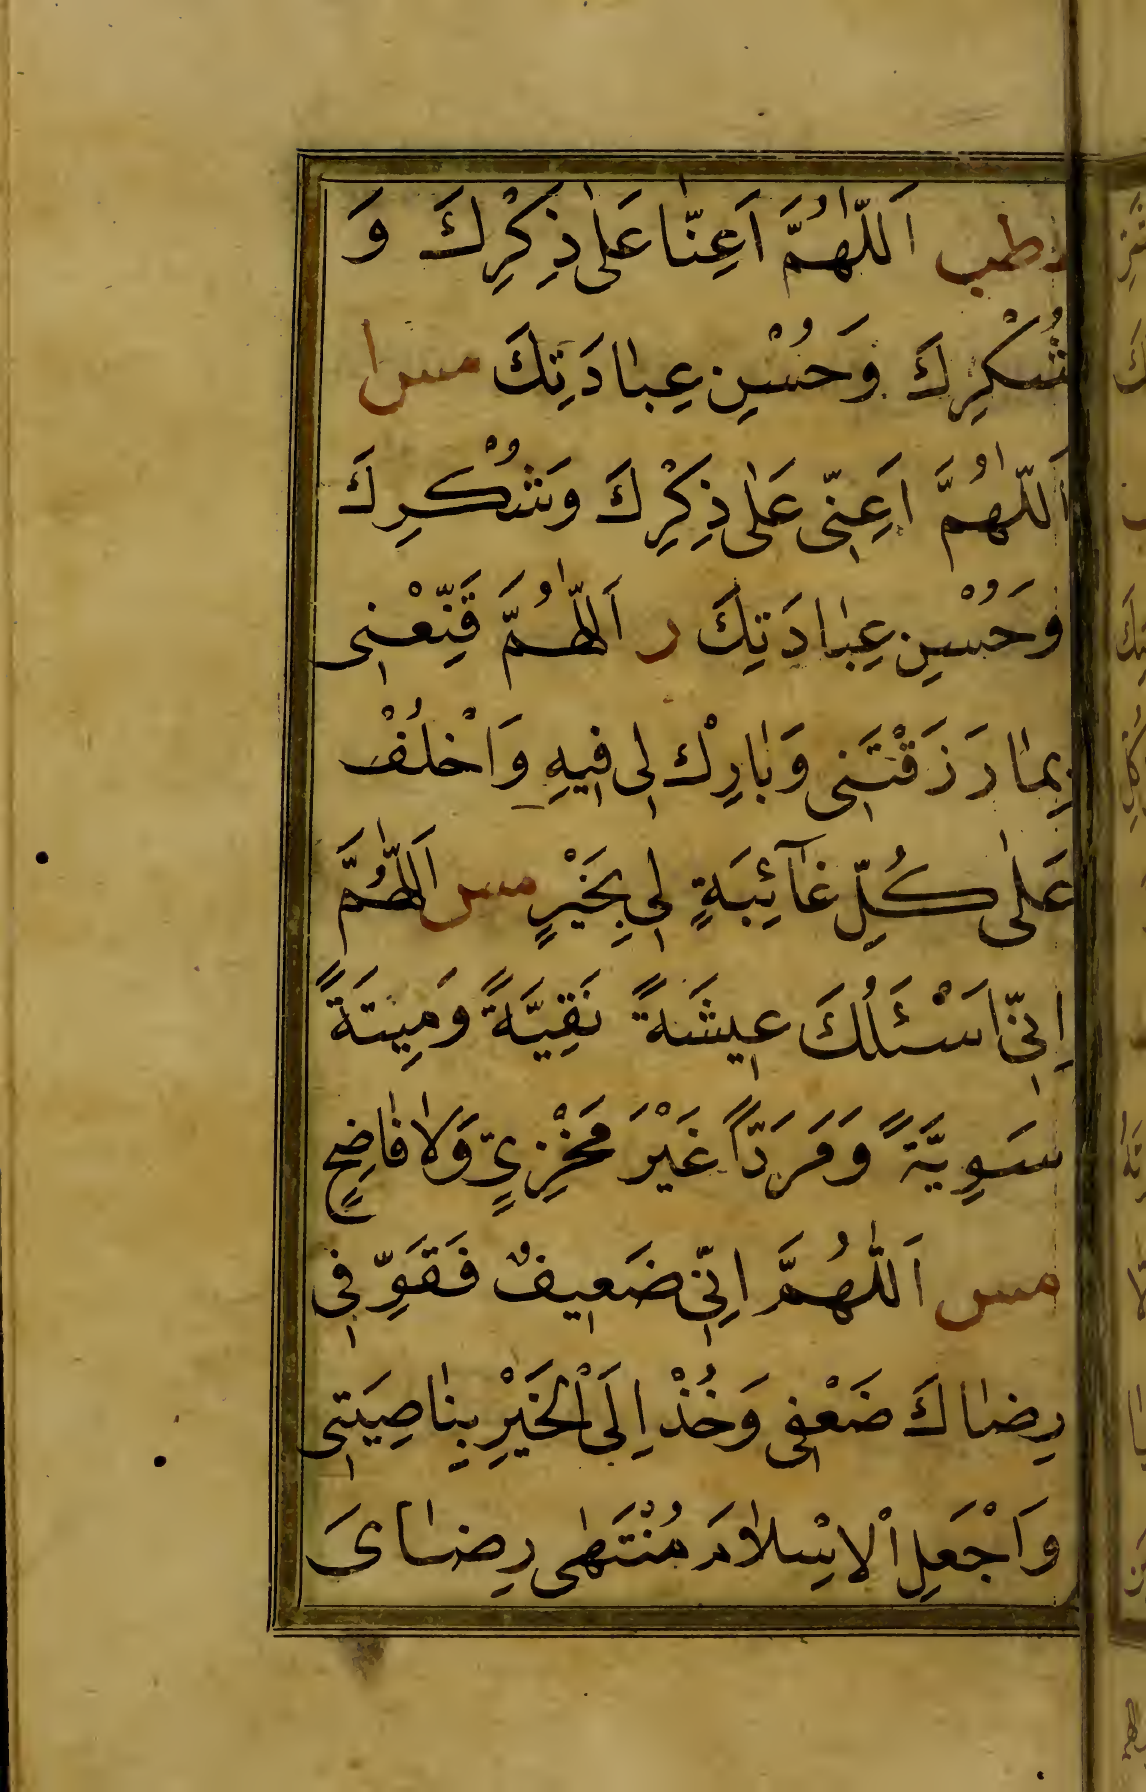 طب اَللّٰهُمَّ اَعِنَّا عَلىٰ ذِكْرِكَ وَ
شُكْرِكَ وَحُسْنِ عِبٰادَتِكَ مس ا
اَللّٰهُمَّ اَعِنّى عَلىٰ ذِكْرِكَ وَشُكْرِكَ
وَحُسْنِ عِبٰادَتِكَ ر اَللّٰهُمَّ قَنِّعْنِى
بِمٰا رَزَقْتَنِى وَبٰارِكْ لِى فِيهِ وَاخْلُفْ
عَلىٰ كُلِّ غٰآئِبَةٍ لِى بِخَيْرٍ مس اَللّٰهُمَّ
اِنِّى اَسْئَلُكَ عِيشَةً نَقِيَّةً وَمِيتَةً
سَوِيَّةً وَمَرَدّاً غَيْرَ مَخْزِىٍّ وَلاٰ فٰاضِحٍ
مس اَللّٰهُمَّ اِنِّى ضَعِيفٌ فَقَوِّ فِى
رِضٰاكَ ضَعْفِى وَخُذْ اِلَى الْخَيْرِ بِنٰاصِيَتِى
وَاجْعَلِ الْاِسْلاٰمَ مُنْتَهٰى رِضٰاىَ